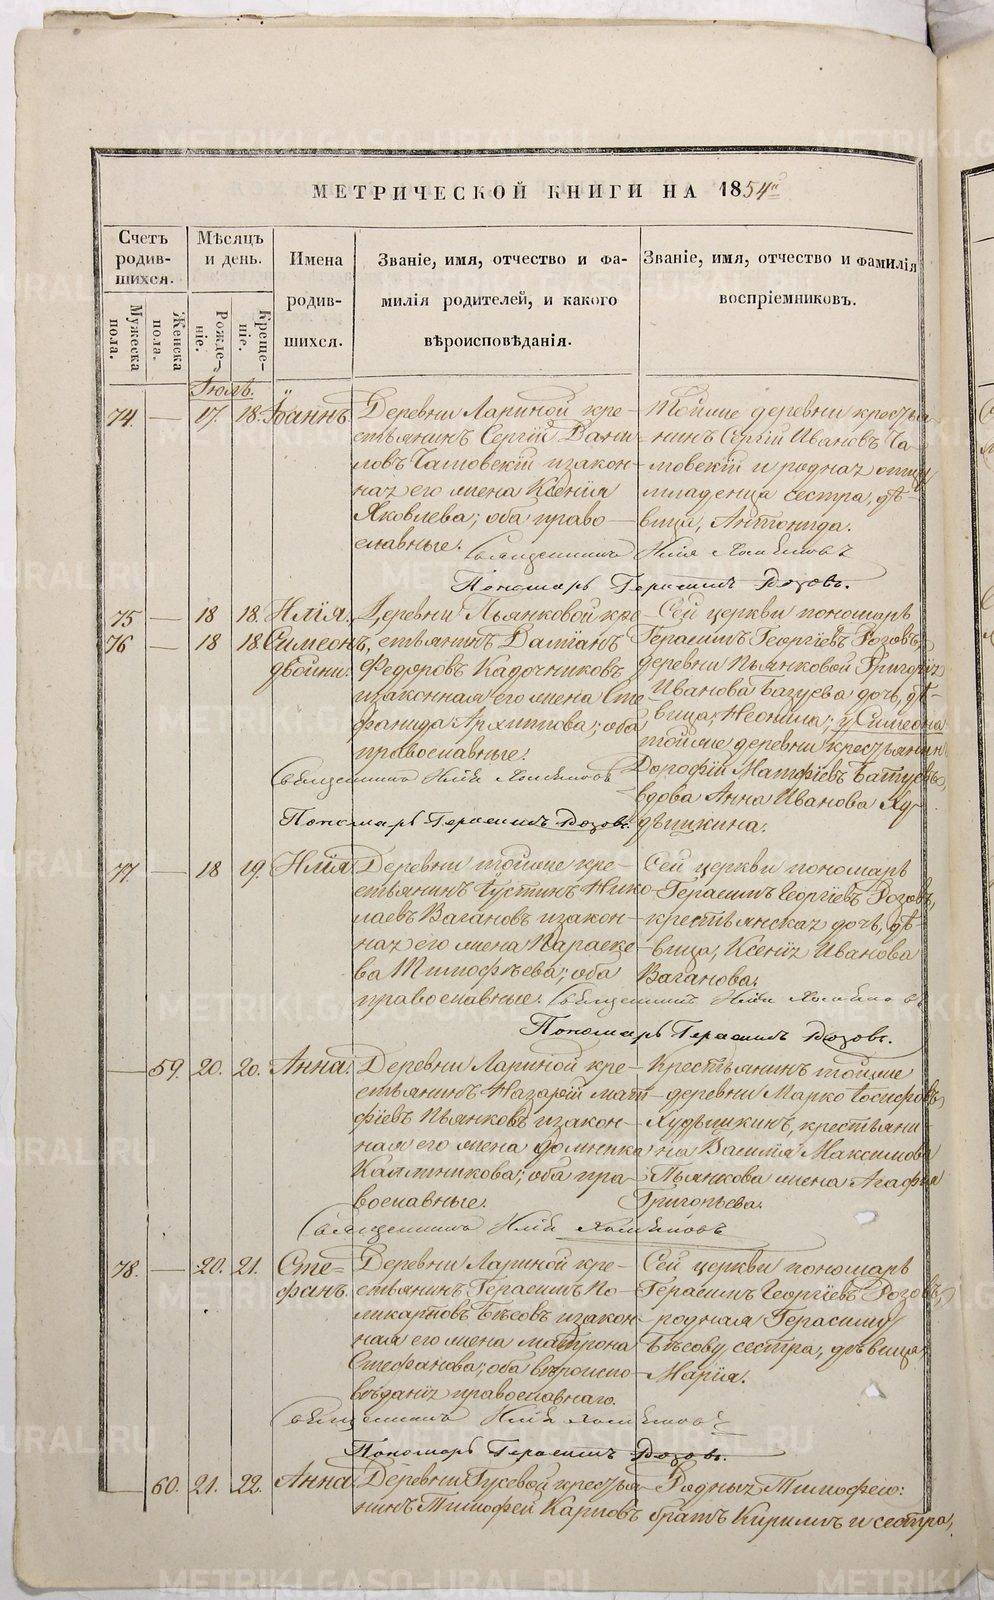 МЕТРИЧЕСКОЙ КНИГИ НА 1854й
Счетъ родив-шихся.
Мѣсяцъ и день.
Имена родив-шихся.
Званіе, имя, отчество и фа-
милія родителей, и какого
вѣроисповѣданія.
Званіе, имя, отчество и фамилія
воспріемниковъ.
Мужеска пола.
Женска пола.
Рожде-ніе.
Креще-ніе.
Іюль.
74. — 17. 18. Іоаннъ.
Деревни Лариной кре-
стьянинъ Сергій Дани-
ловъ Чамовскій и закон-
ная его жена Ксенія
Яковлева; оба право-
славные.
Тойже деревни крестья-
нинъ Сергій Ивановъ Ча-
мовскій и родная отцу
младенца сестра, дѣ-
вица, Антонида.
Священникъ Илія
Пономарь Герасимъ Розовъ.
75 — 18 18. Илія.
76 — 18 18. Симеонъ, двойни.
Деревни Пьянковой кре-
стьянинъ Даміанъ
Федоровъ Кадочниковъ
и законная его жена Сте-
фанида Архипова; оба
православные.
Сей церкви пономарь
Герасимъ Георгіевъ Розовъ,
деревни Пьянковой Григорія
Иванова Батуева дочь, дѣ-
вица, Неонила; у Симеона
тойже деревни крестьянин
Дорофій Матфіевъ Батуевъ,
вдова Анна Иванова Ху-
дышкина.
Священникъ Илія
Пономарь Герасимъ Розовъ.
77. — 18 19. Илія.
Деревни тойже кре-
стьянинъ Іустинъ Нико-
лаевъ Вагановъ и закон-
ная его жена Параске-
ва Тимофѣева; оба
православные.
Сей церкви пономарь
Герасимъ Георгіевъ Розовъ,
крестьянская дочь, дѣ-
вица, Ксенія Иванова
Ваганова.
Священникъ Илія
Пономарь Герасимъ Розовъ.
— 59. 20. 20. Анна.
Деревни Лариной кре-
стьянинъ Назарій Мат-
фіевъ Пьянковъ и закон-
ная его жена Домника
Каллиникова; оба пра-
вославные.
Крестьянинъ тойже
деревни Марко Іосифовъ
Худышкинъ, крестьяни-
на Василія Максимова
Пьянкова жена Агафія
Григорьева.
Священникъ Илія
78. — 20. 21. Сте=
фанъ.
Деревни Лариной кре-
стьянинъ Герасимъ По-
ликарповъ Бѣсовъ и закон-
ная его жена Матрона
Стефанова; оба вѣроиспо-
вѣданія православнаго.
Сей церкви пономарь
Герасимъ Георгіевъ Розовъ,
родная Герасиму
Бѣсову сестра, дѣвица,
Марія.
Священникъ Илія
Пономарь Герасимъ Розовъ.
60. 21. 22. Анна.
Деревни Гусевой крестья-
нинъ Тимофей Карповъ
Родных Тимофею:
братъ Кириллъ и сестра,
METRIKI.GASO-URAL.RU